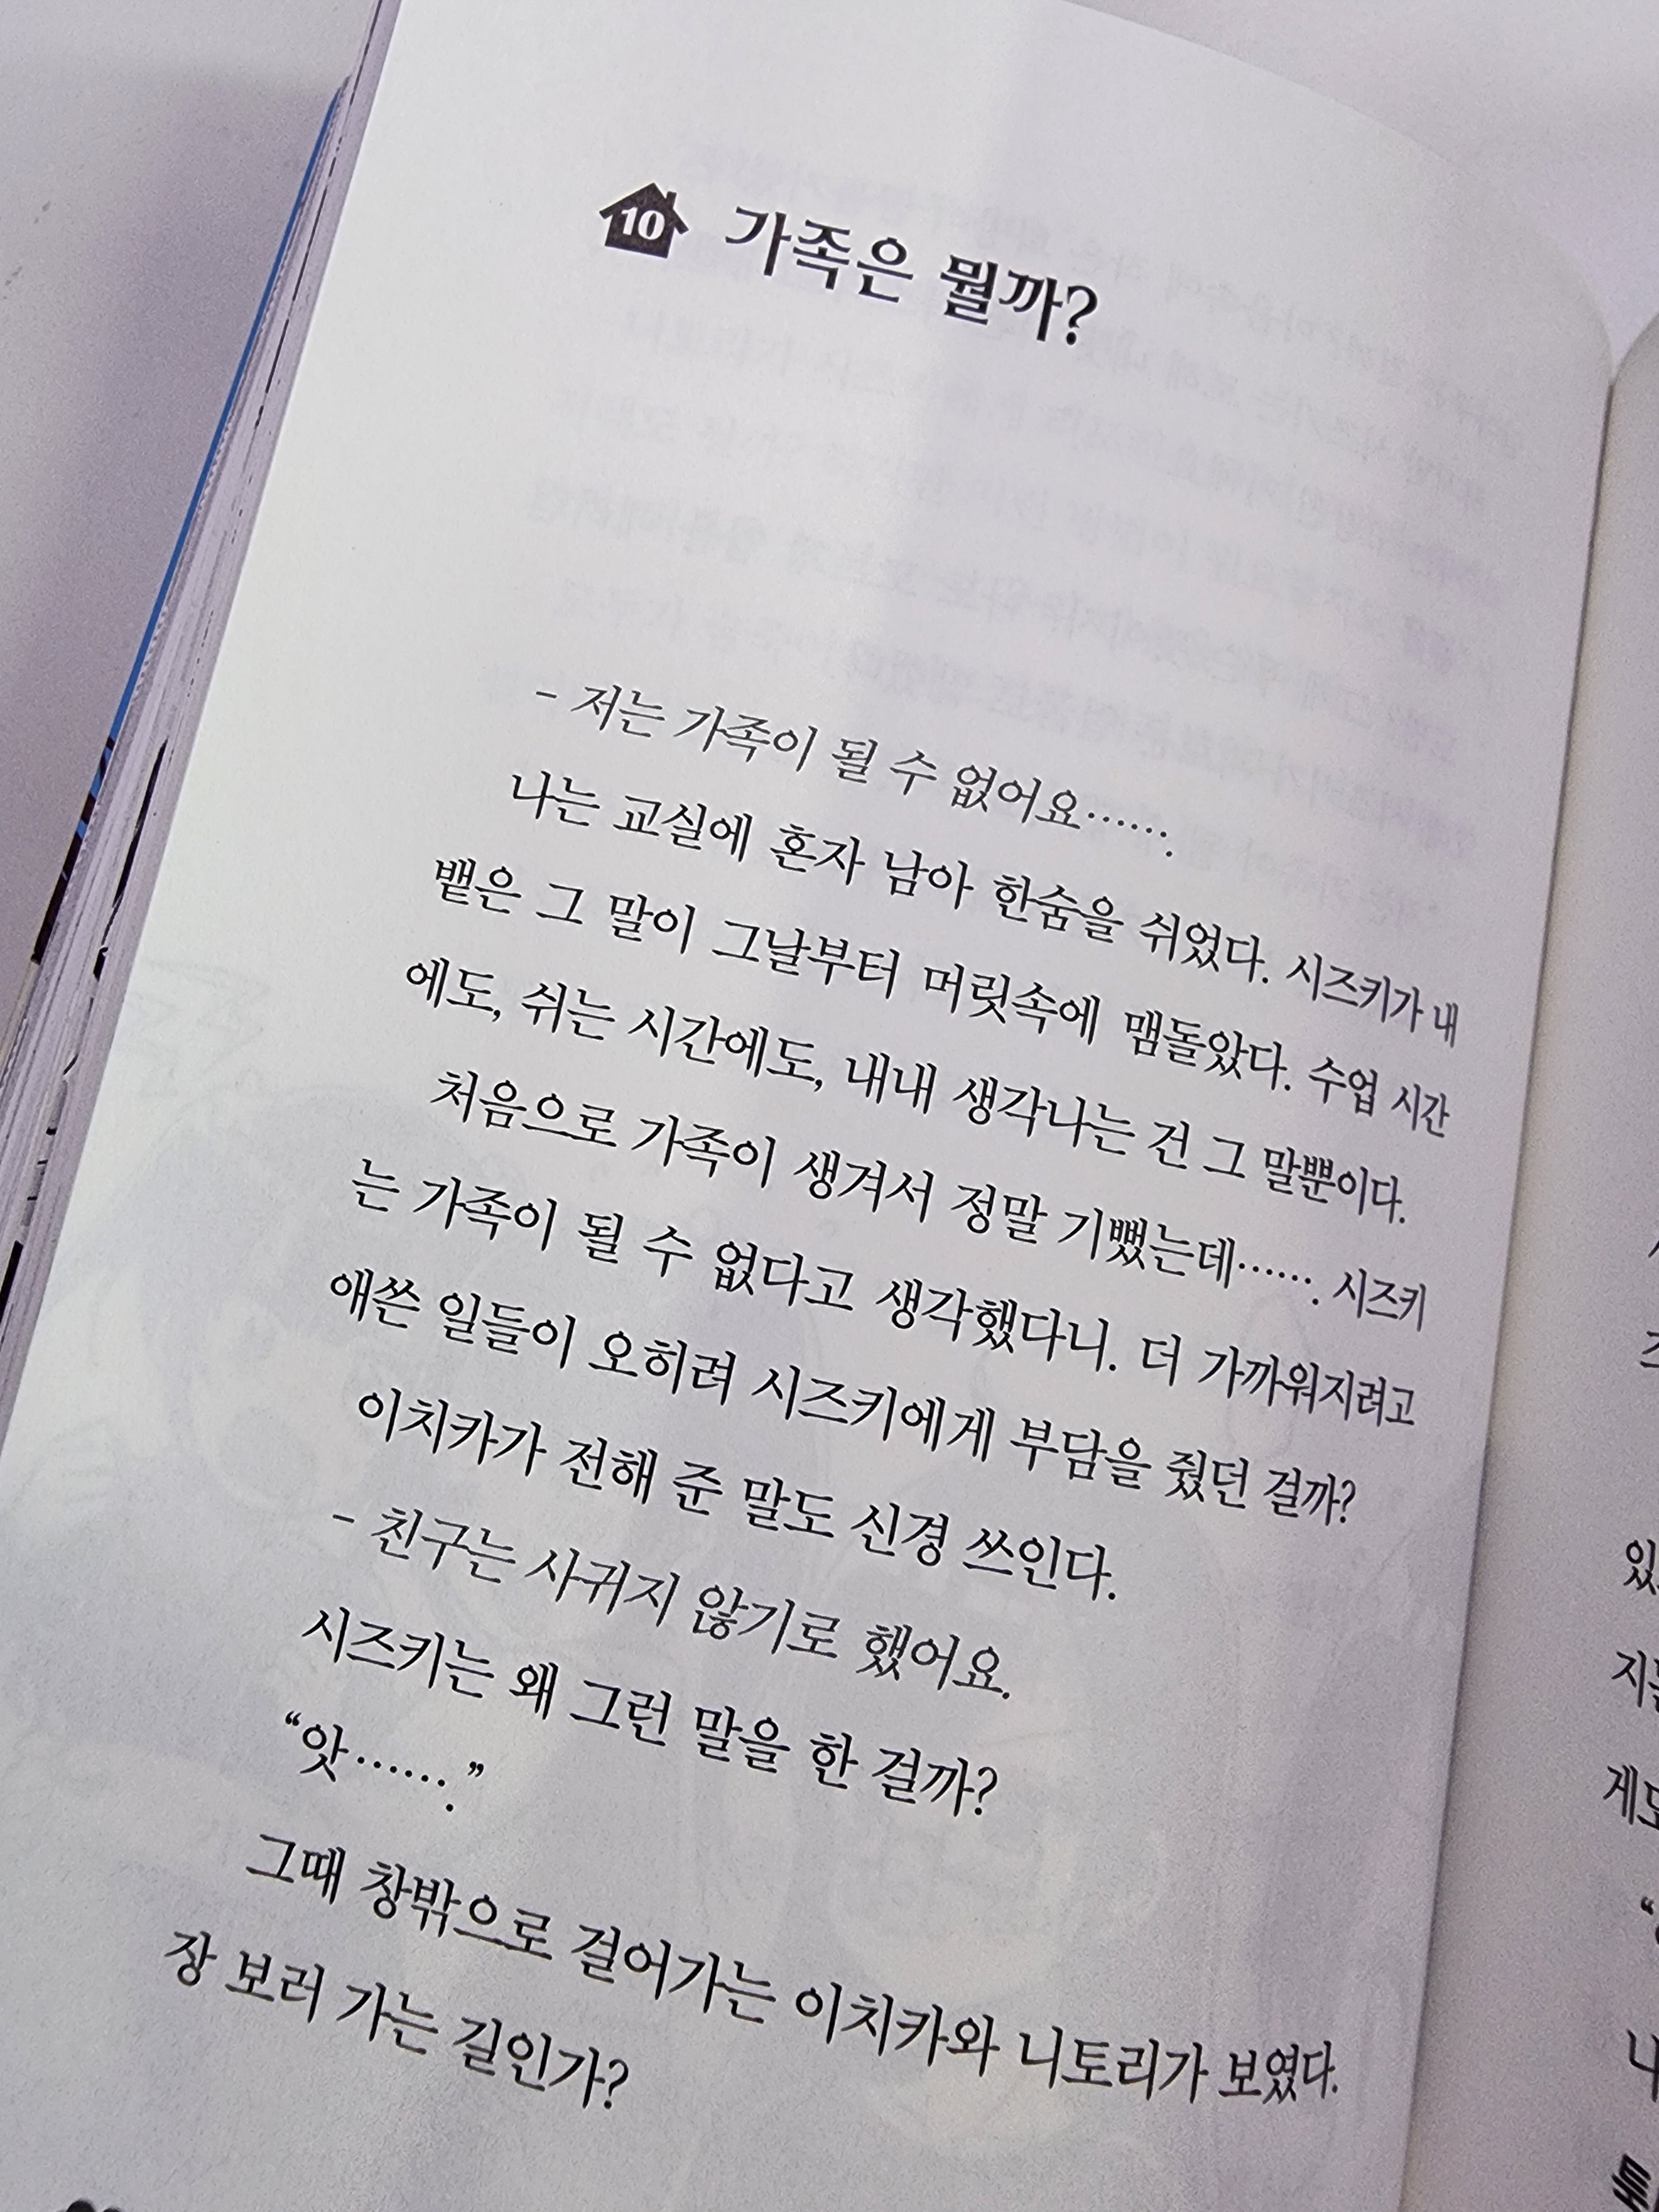 10 가족은 뭘까?
- 저는 가족이 될 수 없어요…….
나는 교실에 혼자 남아 한숨을 쉬었다. 시즈키가 내
뱉은 그 말이 그날부터 머릿속에 맴돌았다. 수업 시간
에도, 쉬는 시간에도, 내내 생각나는 건 그 말뿐이다.
처음으로 가족이 생겨서 정말 기뻤는데……. 시즈키
는 가족이 될 수 없다고 생각했다니. 더 가까워지려고
애쓴 일들이 오히려 시즈키에게 부담을 줬던 걸까?
이치카가 전해 준 말도 신경 쓰인다.
- 친구는 사귀지 않기로 했어요.
시즈키는 왜 그런 말을 한 걸까?
“앗…….”
그때 창밖으로 걸어가는 이치카와 니토리가 보였다.
장 보러 가는 길인가?